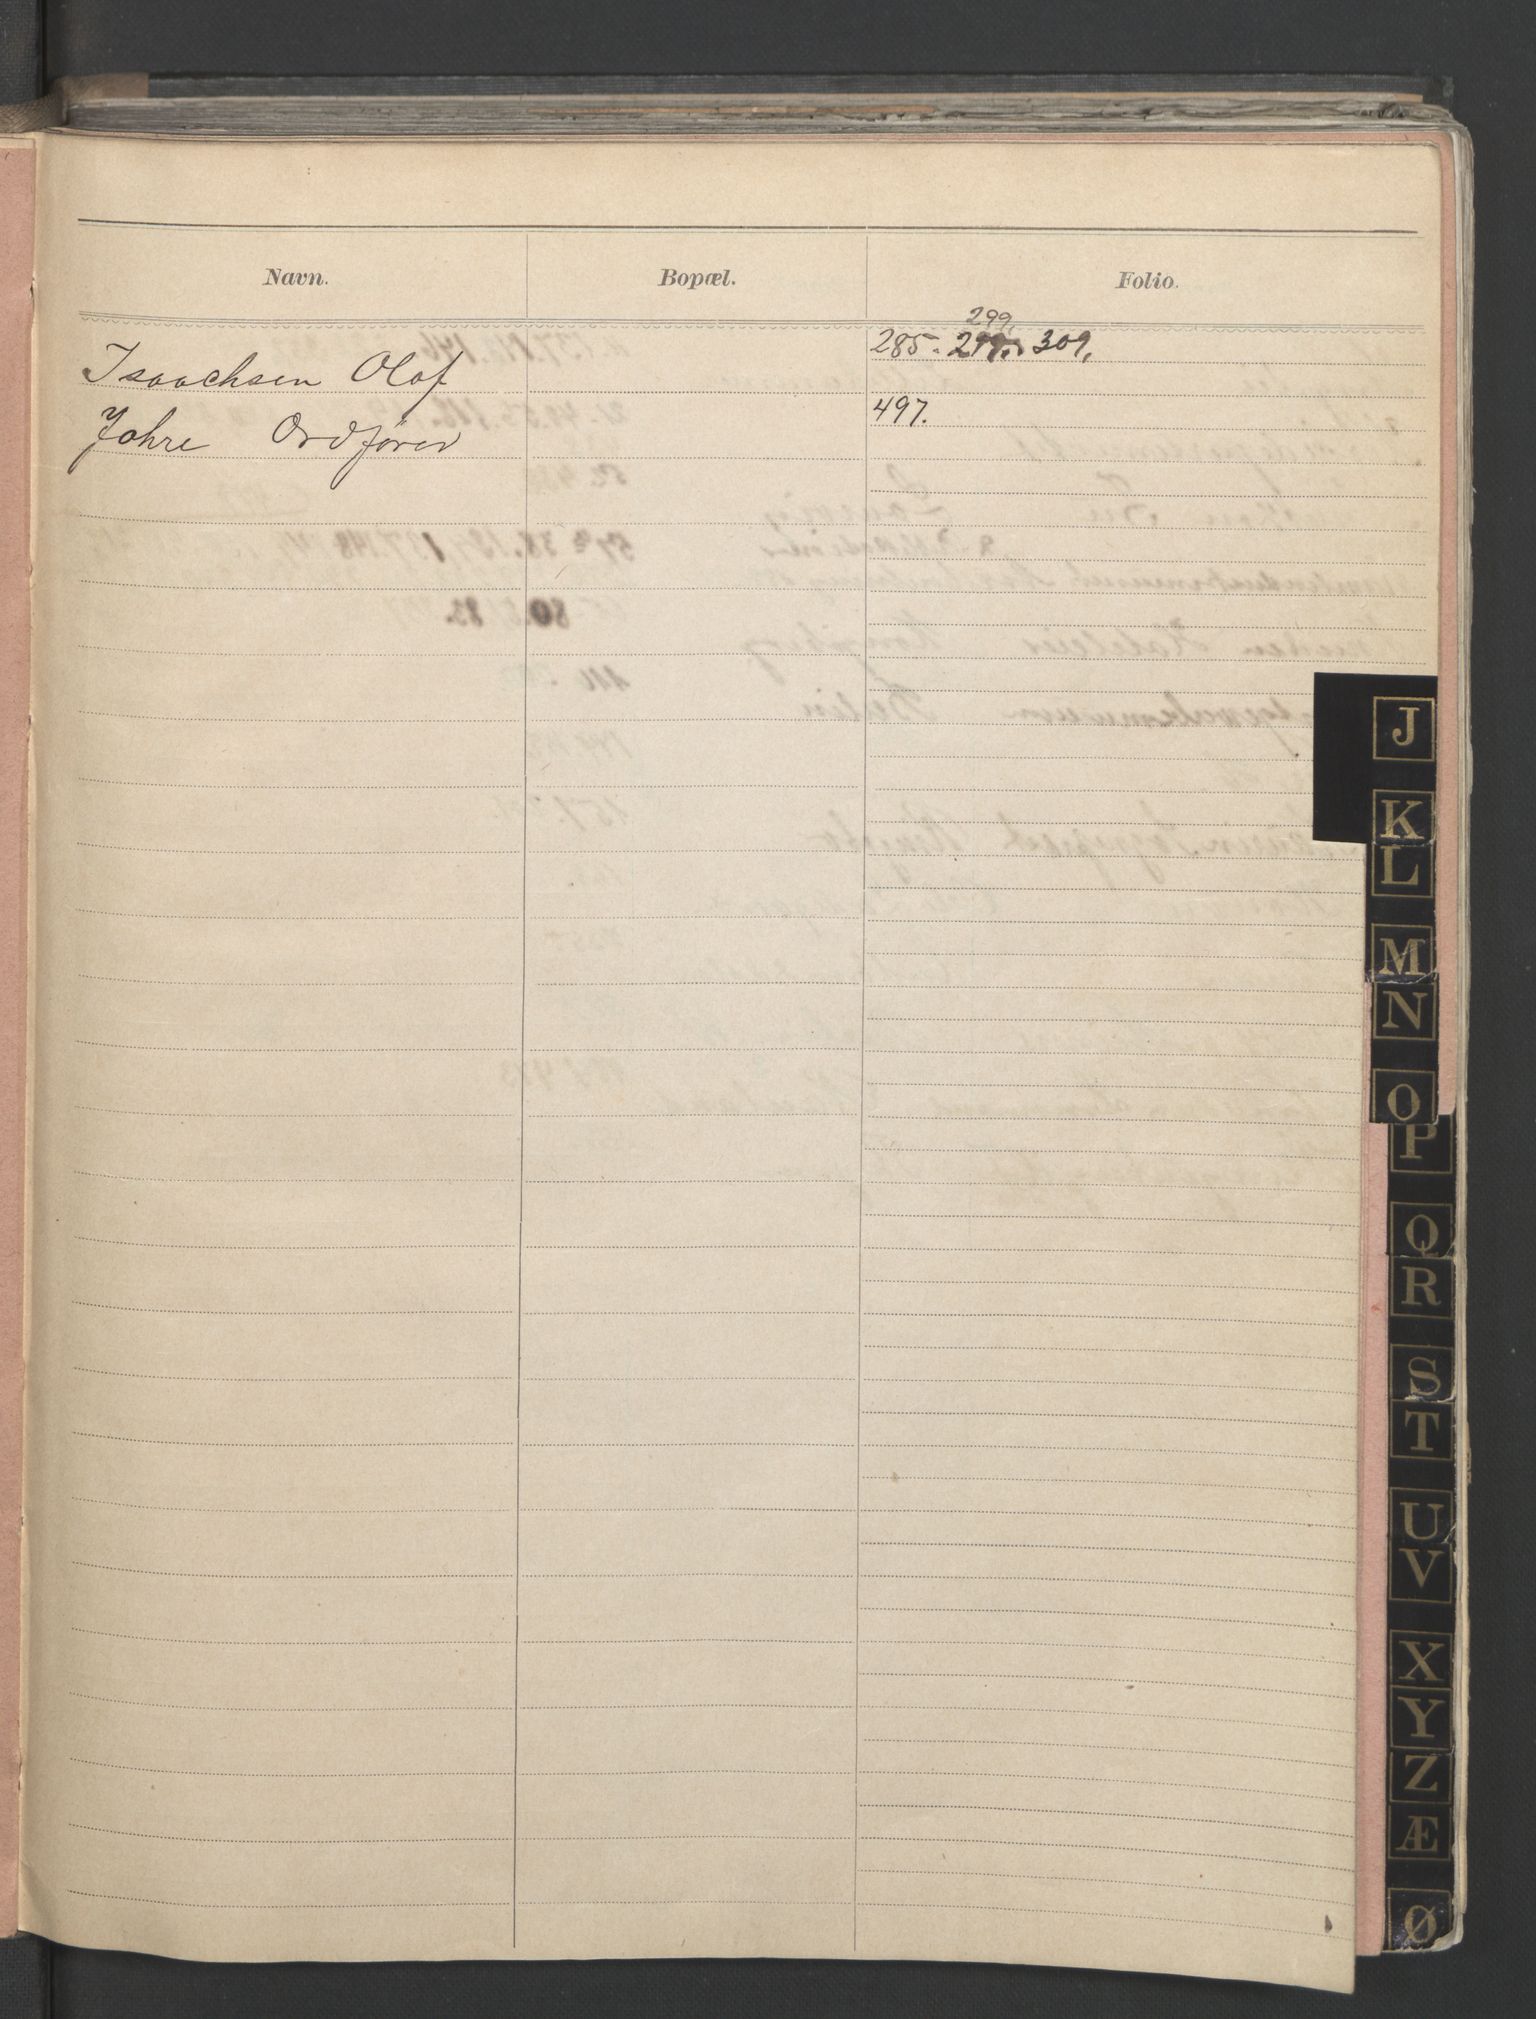 Navn. Bopæl. Folio.
299,
Isaachsen Olaf 285. 299. 309.
Jahre Ordfører 497.
J
K
L
M
N
O
P
Q
R
S
T
U
V
X
Y
Z
Æ
Ø